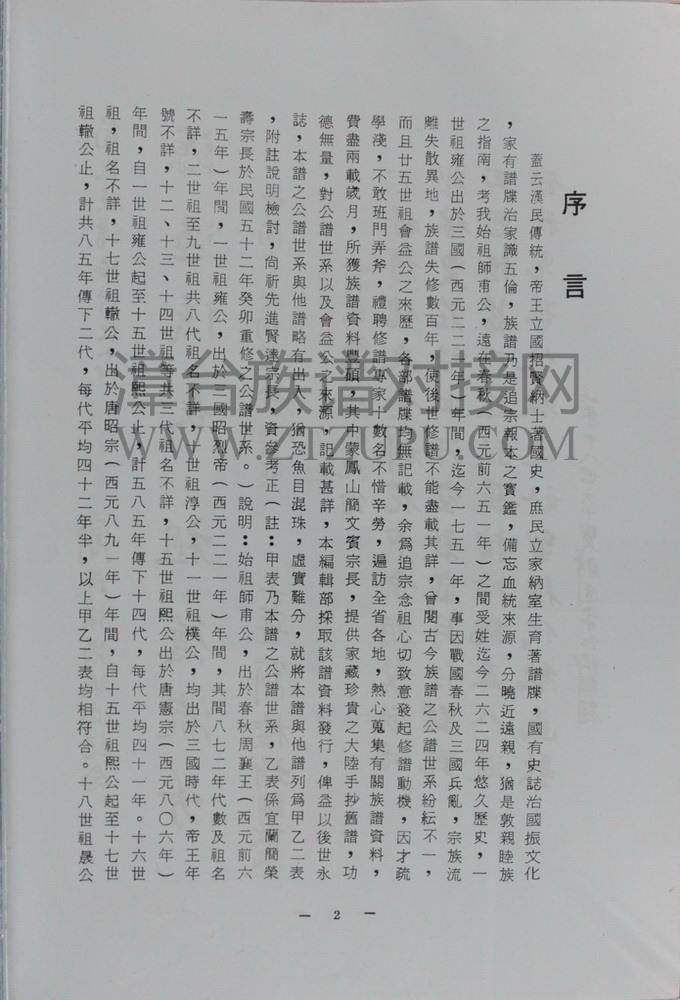 序言
蓋云漢民傳統，帝王立國招賢納士著國史，庶民立家納室生育著譜牒，國有史誌治國振文化
，家有譜牒治家識五倫，族譜乃是追宗報本之寶鑑，備忘血統來源，分曉近遠親，猶是敦親睦族
之指南，考我始祖師甫公，遠在春秋（西元前六五一年）之間受姓迄今二六二四年悠久歷史，一
世祖雍公出於三國（西元二二一年）年間，迄今一七五一年，事因戰國春秋及三國兵亂，宗族流
離失散異地，族譜失修數百年，使後世修譜不能盡載其詳，曾閱古今族譜之公譜世系紛紜不一，
而且廿五世祖會益公之來歷，各部譜牒均無記載，余爲追宗念祖心切致意發起修譜動機，因才疏
學淺，不敢班門弄斧，禮聘修譜專家十數名不惜辛勞，遍訪全省各地，熱心蒐集有關族譜資料，
費盡兩載歲月，所獲族譜資料豐碩，其中蒙鳳山簡文賓宗長，提供家藏珍貴之大陸手抄舊譜，功
德無量，對公譜世系以及會益公之來源，記載甚詳，本編輯部採取該譜資料發行，俾益以後世永
誌，本譜之公譜世系與他譜略有出入，猶恐魚目混珠，虛實難分，就將本譜與他譜列爲甲乙二表
，附註說明檢討，尙祈先進賢達宗長，資參考正（註：甲表乃本譜之公譜世系，乙表係宜蘭簡榮
壽宗長於民國五十二年癸卯重修之公譜世系。）說明：始祖師甫公，出於春秋周襄王（西元前六
一五年）年間，一世祖雍公，出於三國昭烈帝（西元二二一年）年間，其間八七二年代數及祖名
不詳，二世祖至九世祖共八代祖名不詳，十世祖淳公，十一世祖樸公，均出於三國時代，帝王年
號不詳，十二、十三、十四世祖等共三代祖名不詳，十五世祖熙公出於唐憲宗（西元八〇六年）
年間，自一世祖雍公起至十五世祖熙公止，計五八五年傳下十四代，每代平均四十一年。十六世
祖，祖名不詳，十七世祖轍公，出於唐昭宗（西元八九一年）年間，自十五世祖熙公起至十七世
祖轍公止，計共八五年傳下二代，每代平均四十二年半，以上甲乙二表均相符合。十八世祖晟公
— 2 —
漳台族谱对接网
WWW.ZTZUPU.COM